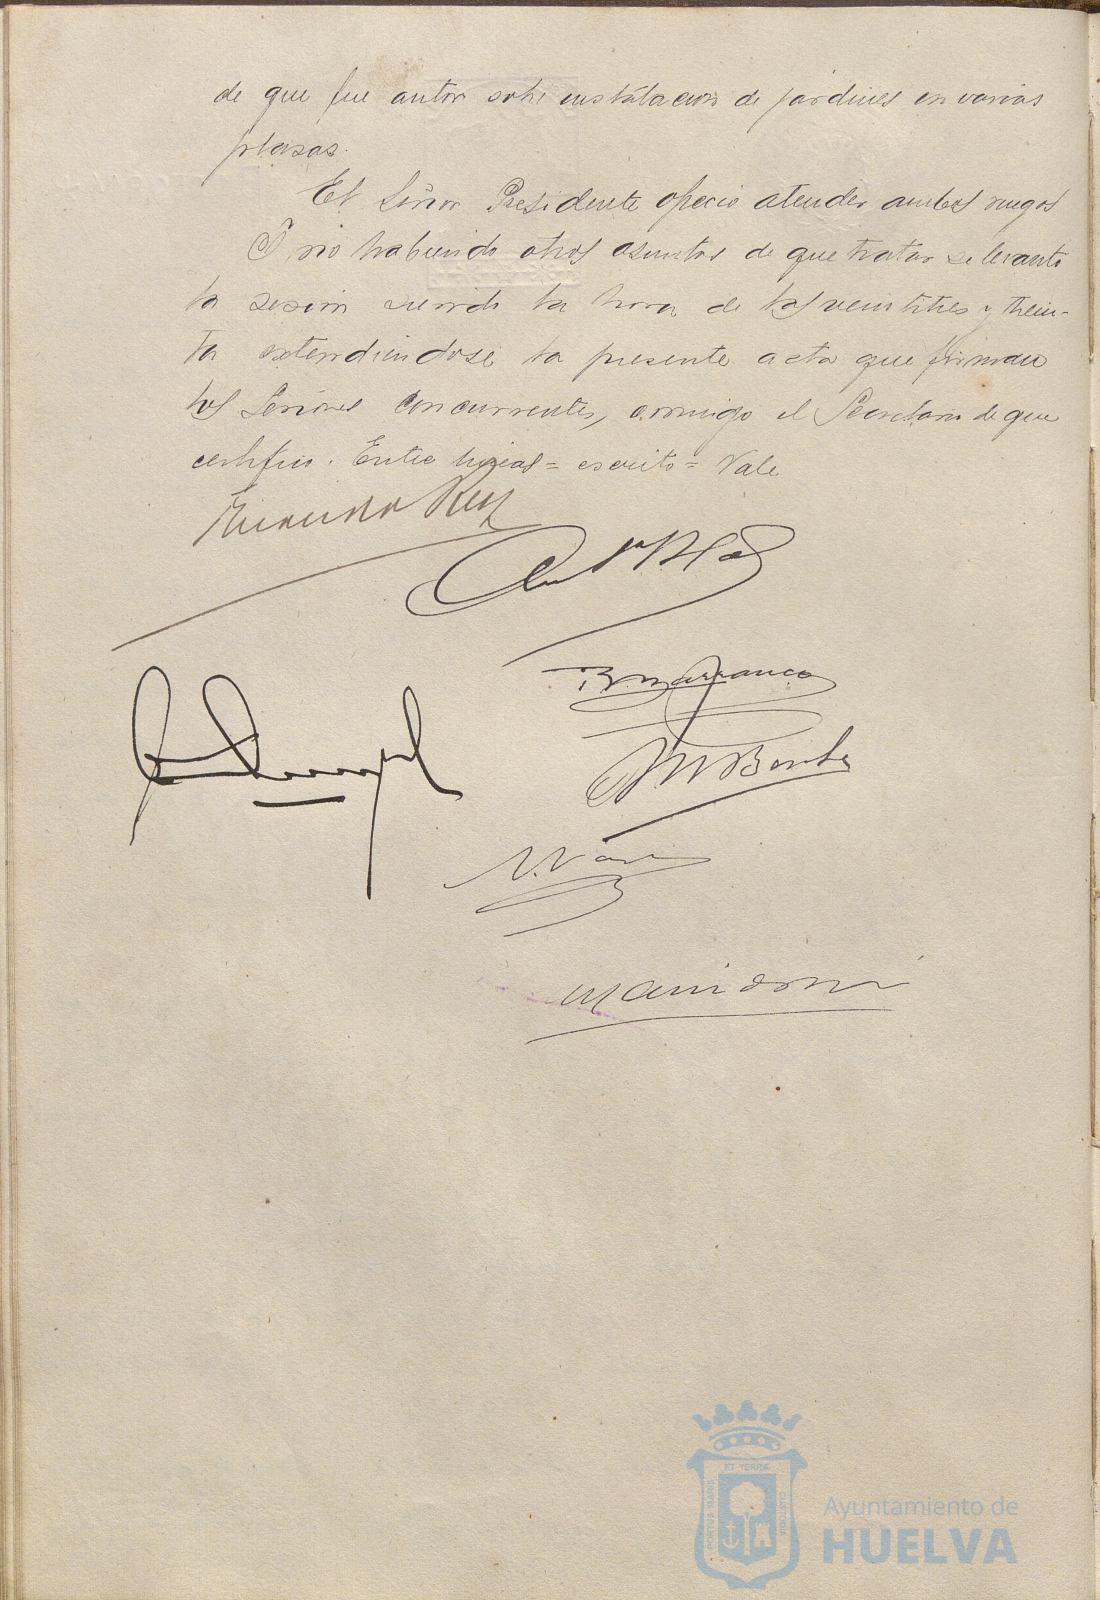 de que fue autor sobre instalacion de jardines en varias
plasas.
El Señor Presidente ofrecio atender ambos ruegos
Y no habiendo otros asuntos de que tratar se levanto
la sesion siendo la hora de las veintitres y trein-
ta extendiendose la presente acta que firman
los Señores concurrentes, conmigo el Secretario de que
certifico. Entre lineas = escrito = Vale
Ruiz
B. Marranco
Ayuntamiento de
HUELVA